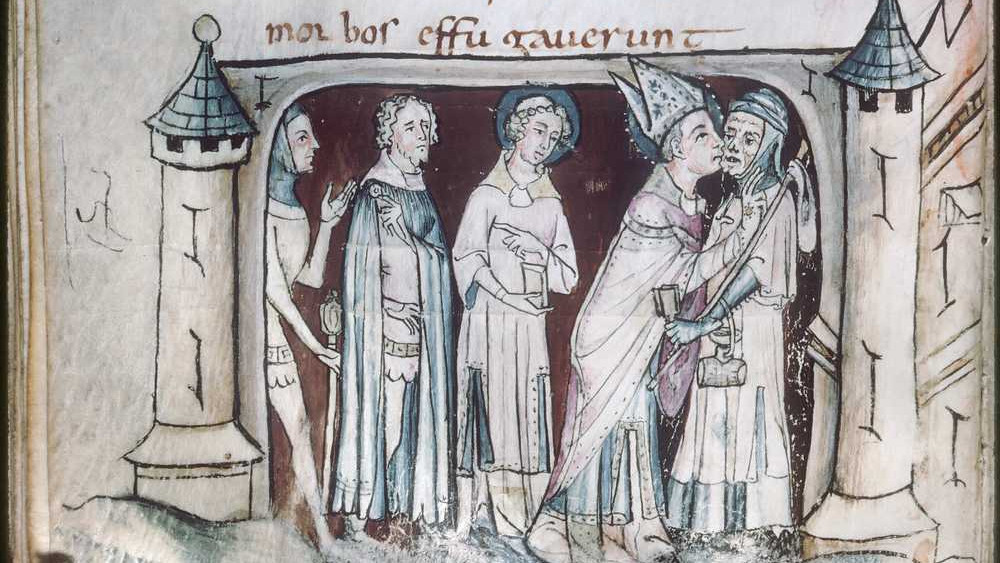 mor bos effu gauerunt